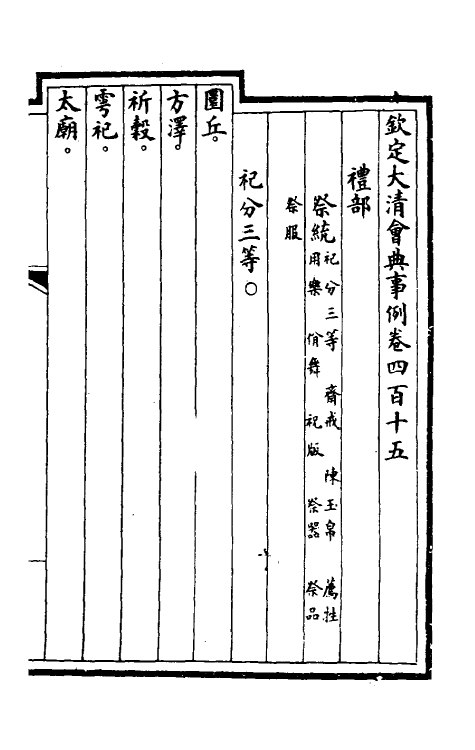 欽定大清會典事例卷四百十五
禮部
祭統 祀分三等 齋戒 陳玉帛 薦牲
用樂 佾舞 祝版 祭器 祭品
祭服
祀分三等○
圜丘。
方澤。
祈穀。
雩祀。
太廟。